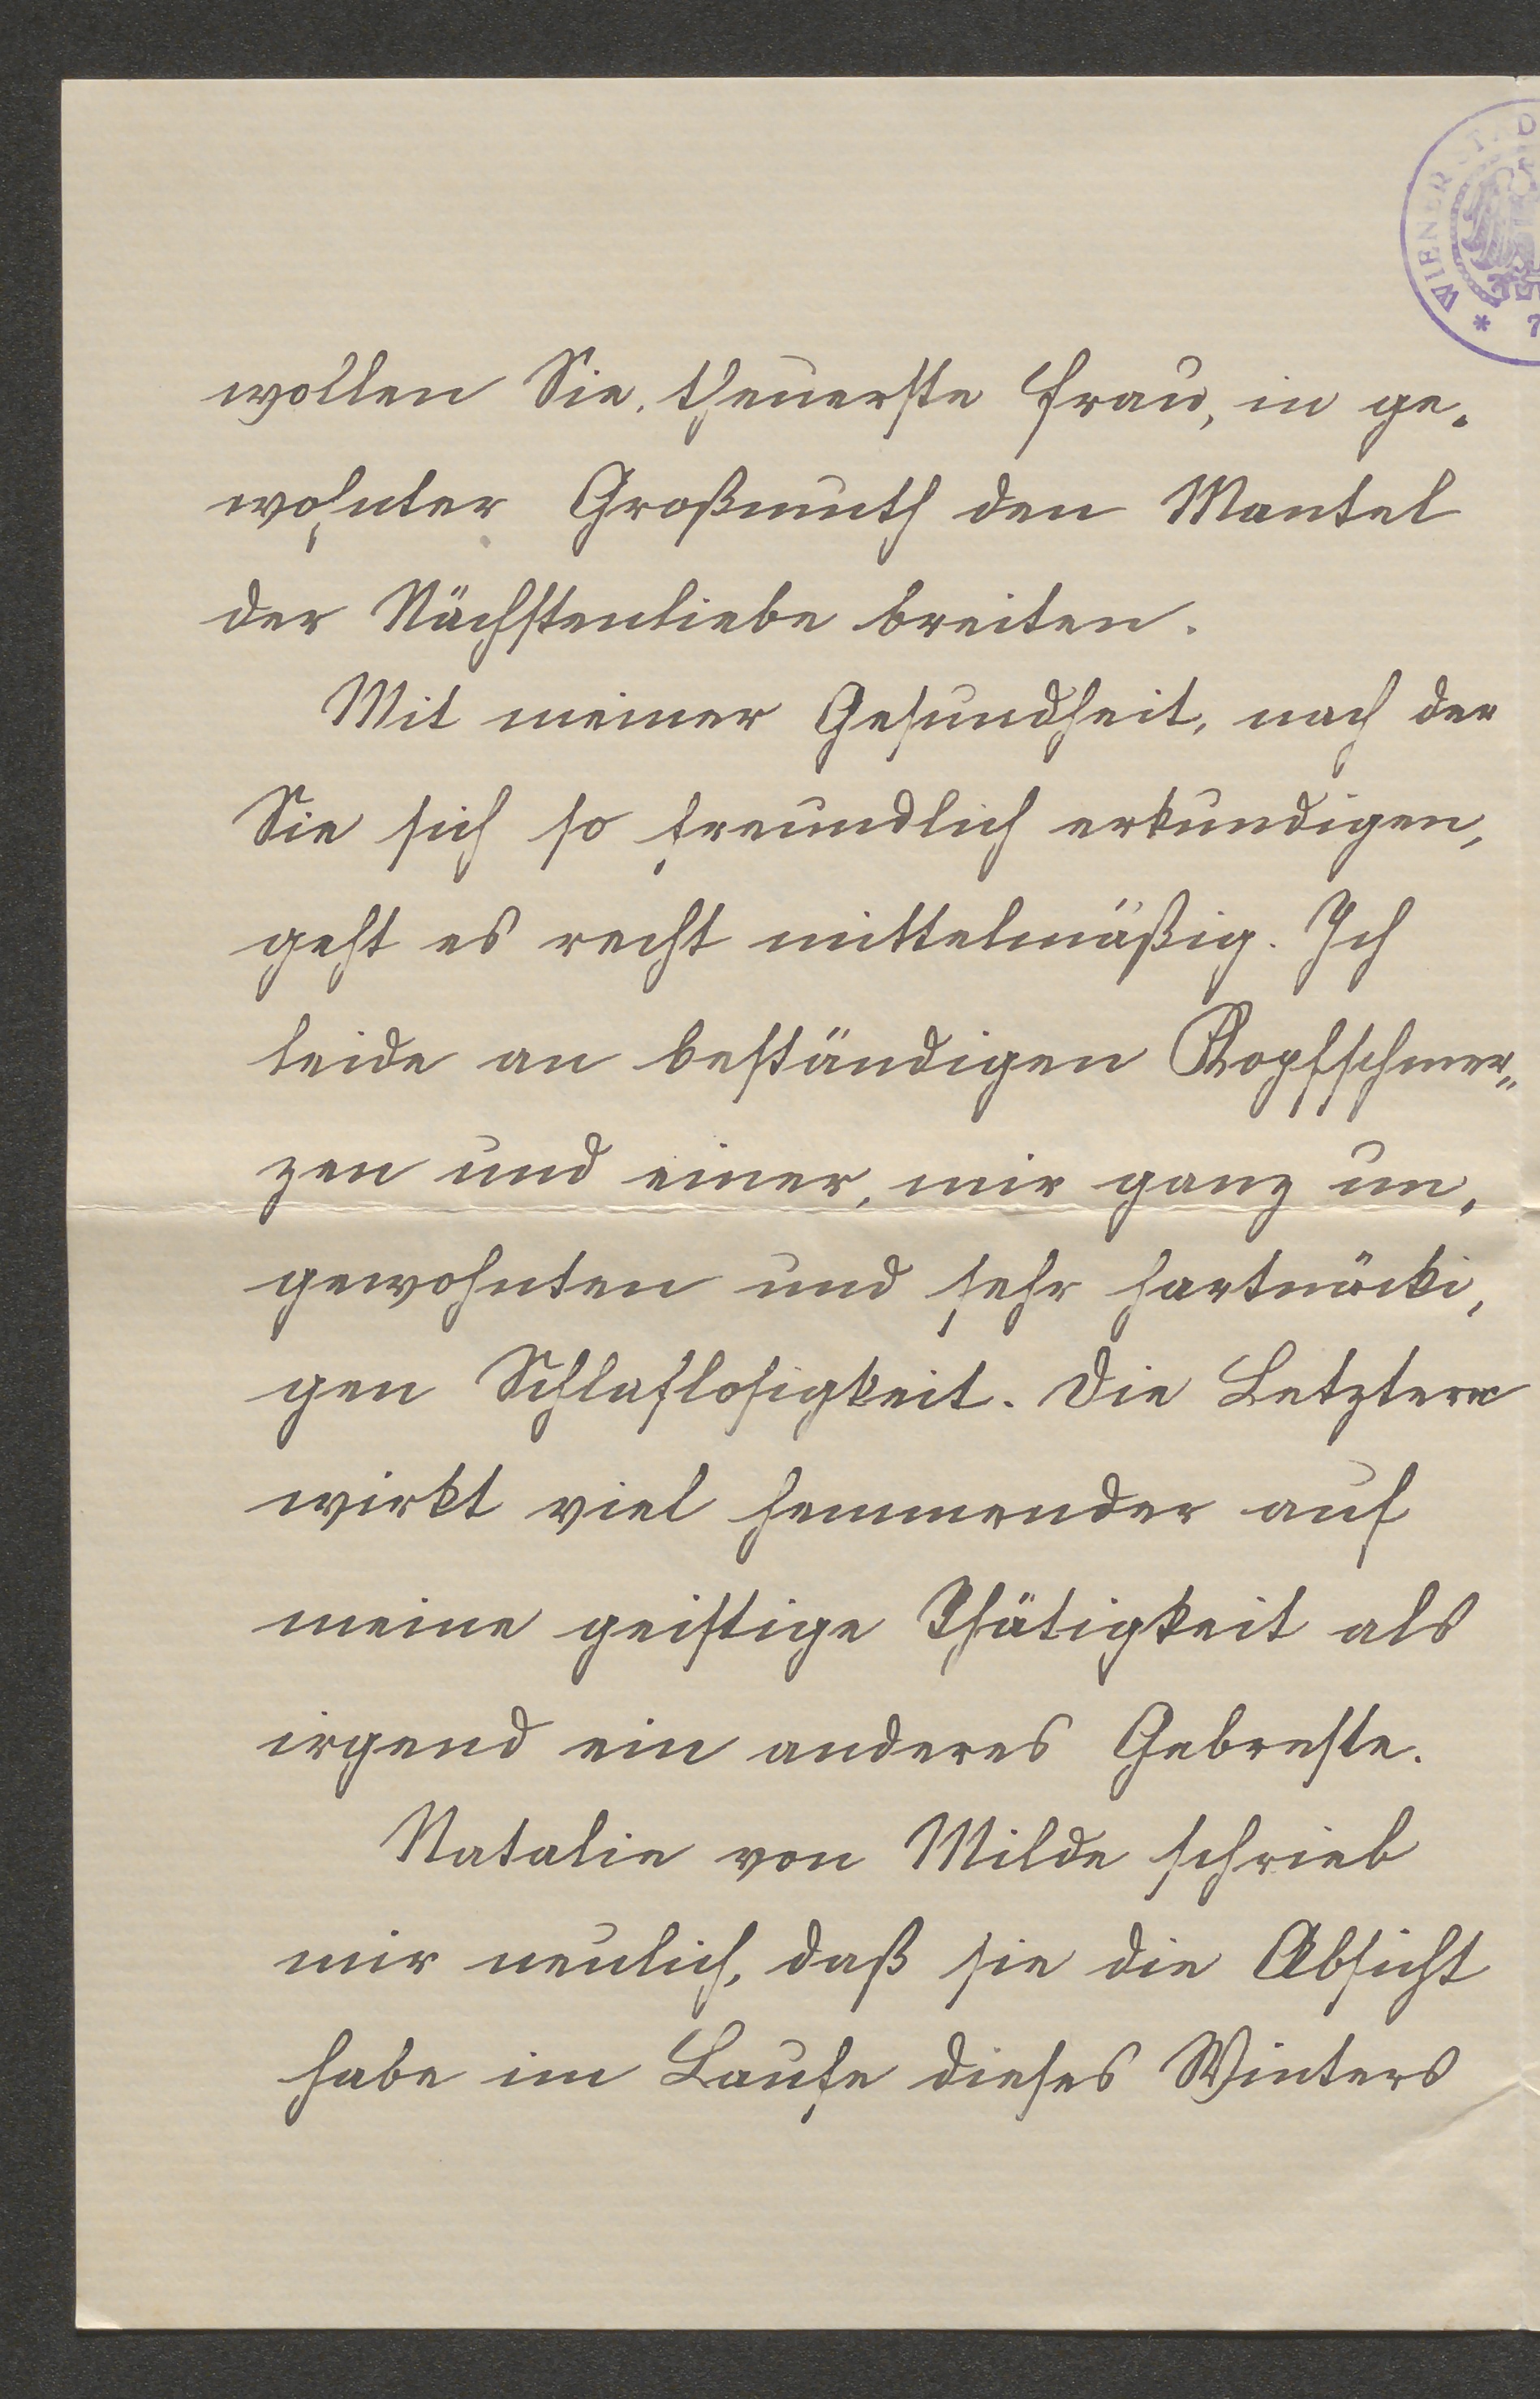 WIENER STAD
* 7
wollen Sie, theuerste Frau, in ge-
wohnter Großmuth den Mantel
der Nächstenliebe breiten.
Mit meiner Gesundheit, nach der
Sie sich so freundlich erkundigen,
geht es recht mittelmäßig. Ich
leide an beständigen Kopfschmer-
zen und einer, mir ganz un-
gewohnten und sehr hartnäcki-
gen Schlaflosigkeit. Die Letztere
wirkt viel hemmender auf
meine geistige Thätigkeit als
irgend ein anderes Gebreste.
Natalie von Milde schrieb
mir neulich, daß sie die Absicht
habe im Laufe dieses Winters